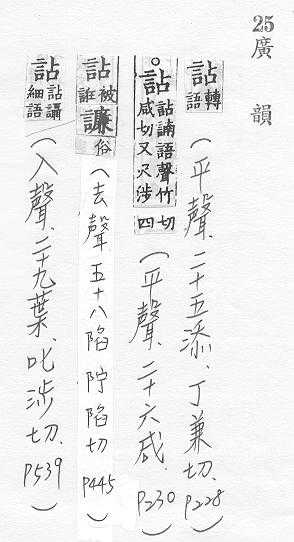 25
廣韻
詀 轉語(平聲、二十五添、丁兼切、P228)
詀 詀諵語聲竹咸切又尺涉切四(平聲、二十六咸、P230)
詀 被誑 謙俗(去聲五十八陷陟陷切P445)
詀 詀讘細語(入聲、二十九葉、叱涉切、P539)